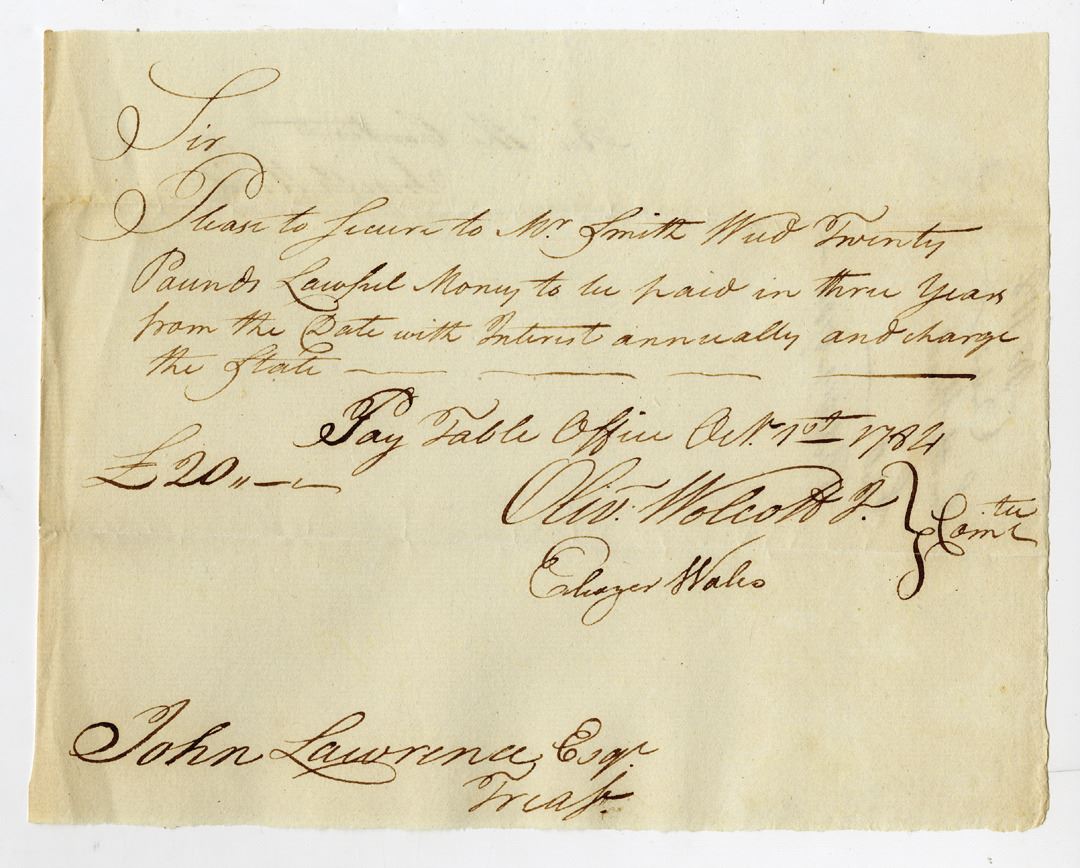 Sir
Please to Secure to Mr Smith Weed Twenty
Pounds Lawful Money to be paid in three Years
from the Date with Interest annually and charge
the State
Pay Table Office Octr. 1st 1784
£20,,—,,—
Olivr. Wolcott Jr. } Comtee
Eleazer Wales
John Lawrence, Esqr.
Treasr.